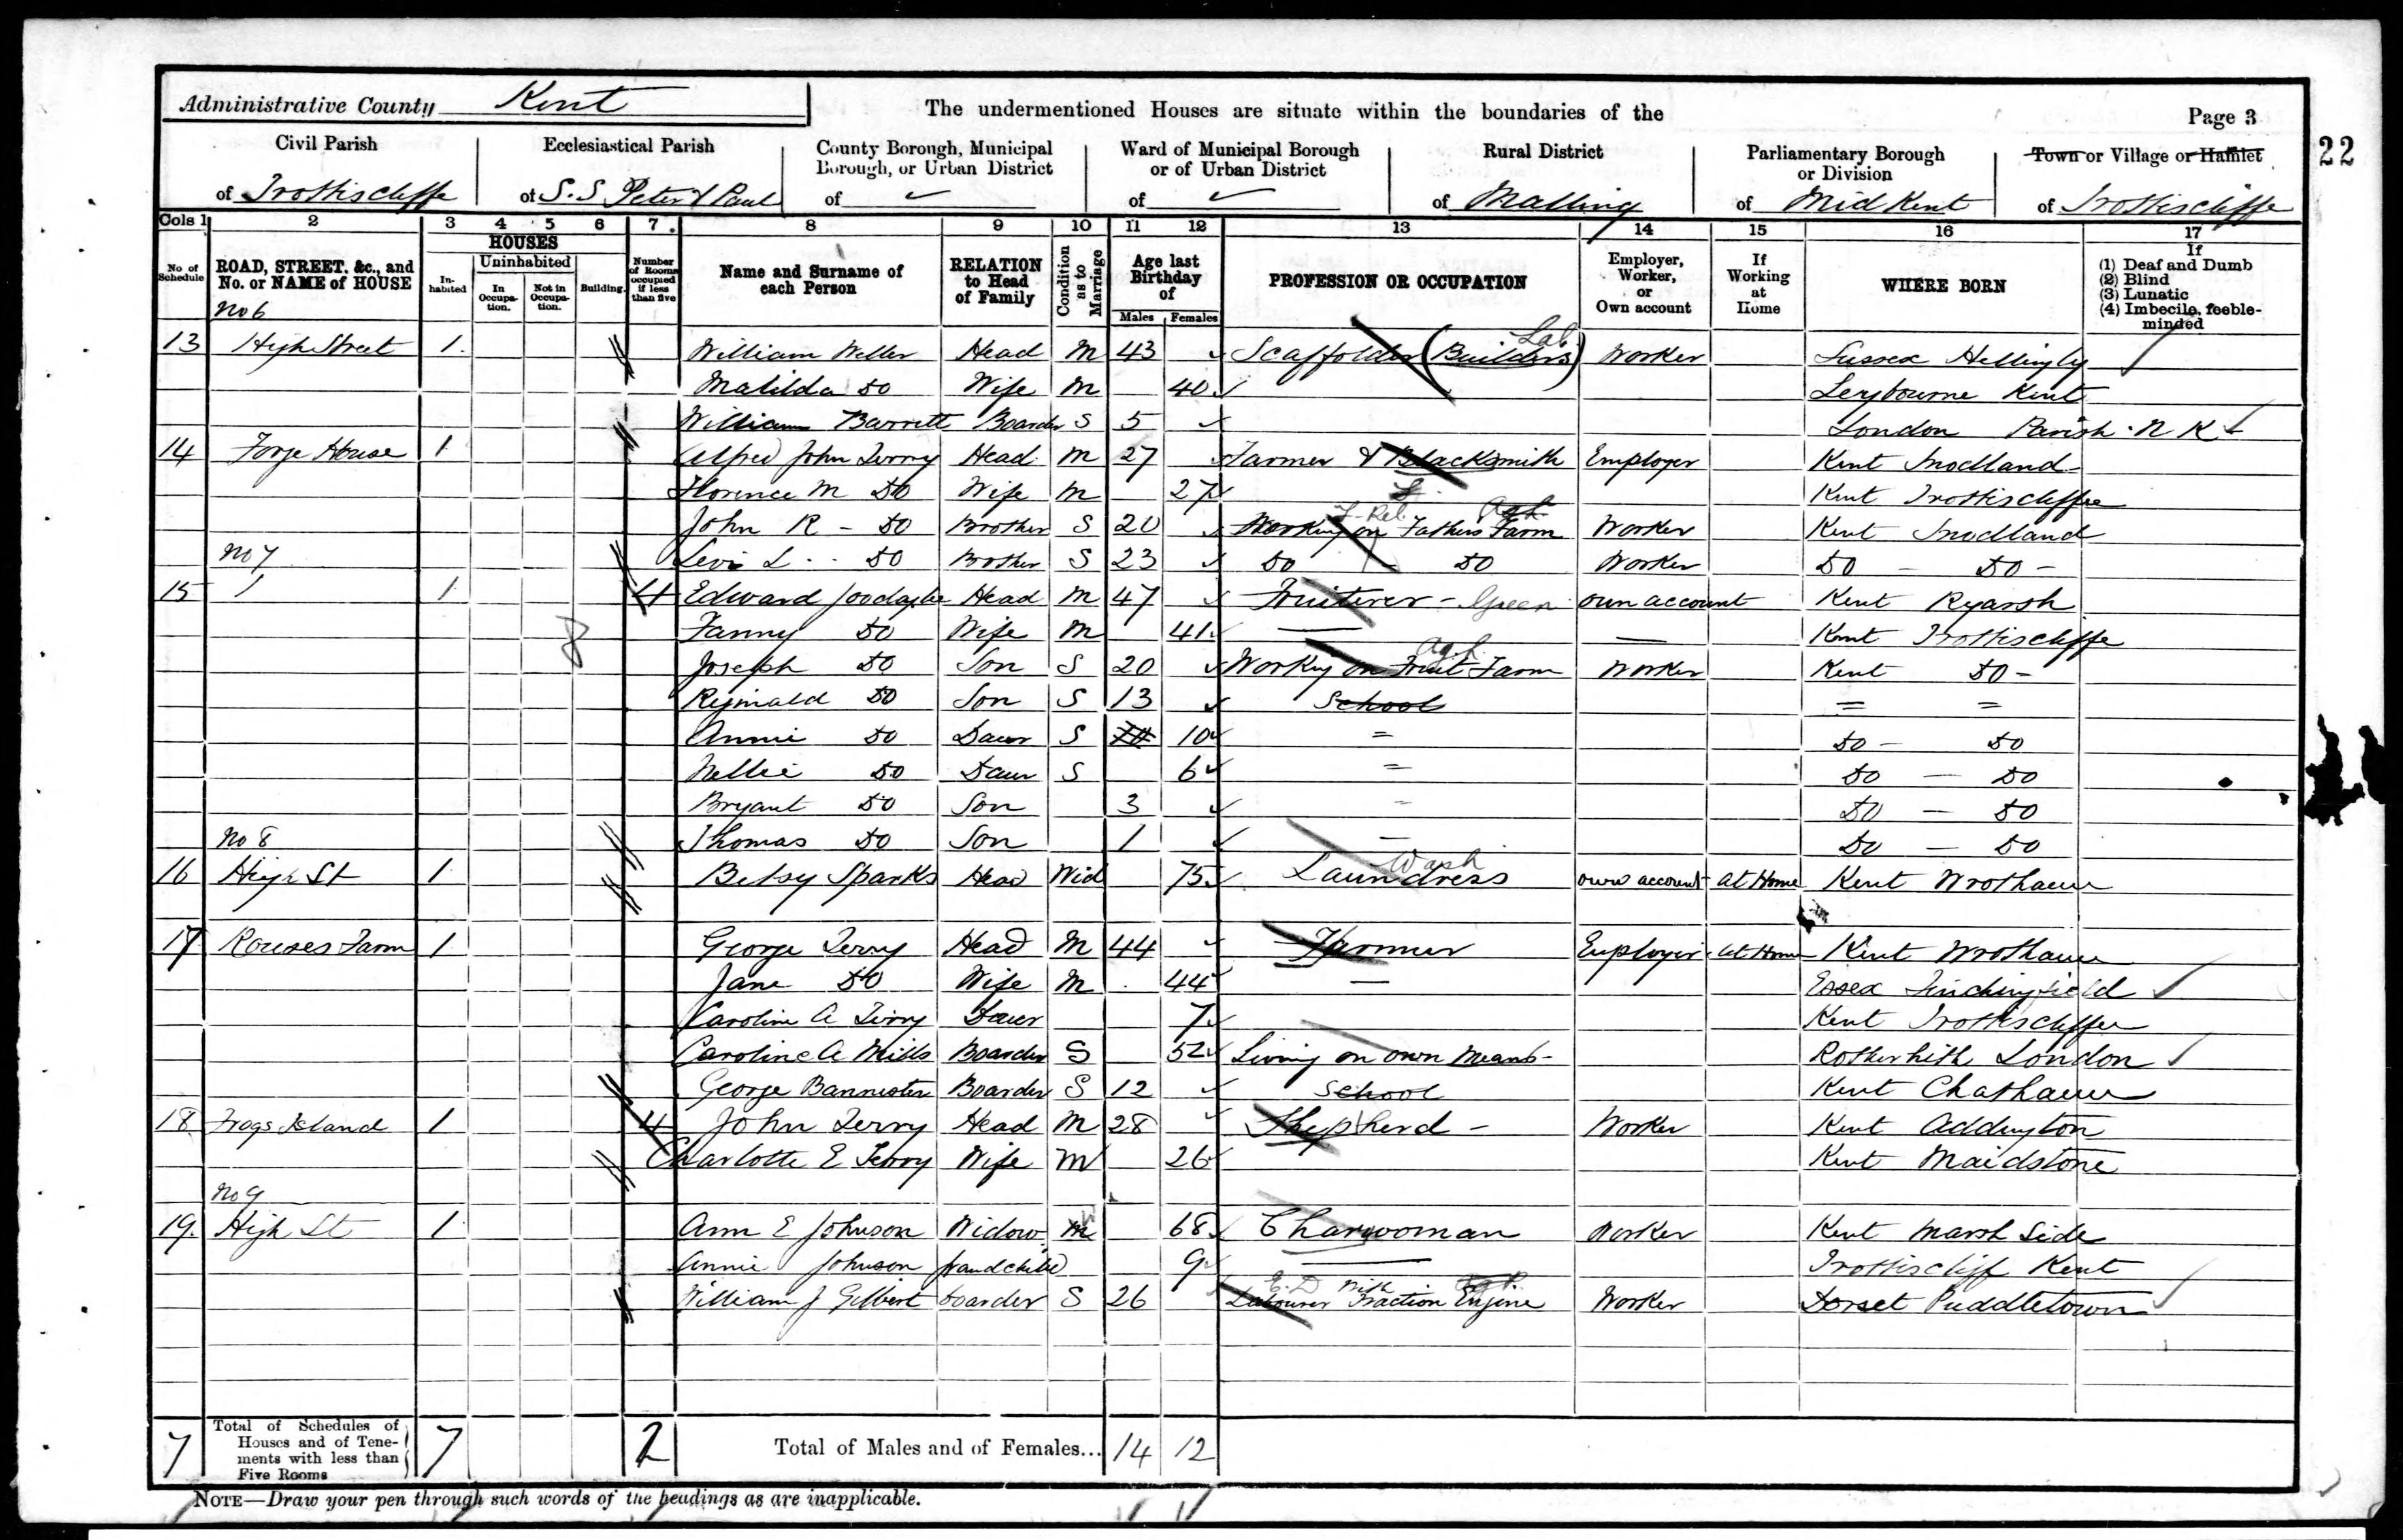 Administrative County Kent
The undermentioned Houses are situate within the boundaries of the
Page 3
22
Civil Parish of Trottiscliffe
Ecclesiastical Parish of S.S Peter & Paul
County Borough, Municipal Borough, or Urban District of ✓
Ward of Municipal Borough or of Urban District of ✓
Rural District of Malling
Parliamentary Borough or Division of Mid Kent
Town or Village or Hamlet of Trottiscliffe
Cols 1 2 3 4 5 6 7 8 9 10 11 12 13 14 15 16 17
No of Schedule
ROAD, STREET, &c., and No. or NAME of HOUSE
HOUSES
In-habited
Uninhabited
In Occupa-tion.
Not in Occupa-tion.
Building.
Number of Rooms occupied if less than five
Name and Surname of each Person
RELATION to Head of Family
Condition as to Marriage
Age last Birthday of
Males Females
PROFESSION OR OCCUPATION
Employer, Worker, or Own account
If Working at Home
WHERE BORN
If
(1) Deaf and Dumb
(2) Blind
(3) Lunatic
(4) Imbecile, feeble-minded
No 6
13 High Street 1 William Weller Head M 43 Scaffolder (Builders) Lab Worker Sussex Hellingly
Matilda Do Wife M 40 Leybourne Kent
William Barrett Boarder S 5 London Parish N K
14 Forge House 1 Alfred John Terry Head M 27 Farmer & Blacksmith Employer Kent Snodland
Florence M Do Wife M 27 Kent Trottiscliffe
John R Do Brother S 20 Working on Fathers Farm Worker Kent Snodland
No 7 Levi L Do Brother S 23 Do Do Worker Do Do
15 1 4 Edward Head M 47 Fruiterer - Green own account Kent Ryarsh
Fanny Do Wife M 41 Kent Trottiscliffe
Joseph Do Son S 20 Working on Fruit Farm Worker Kent Do
Reginald Do Son S 13 School
Annie Do Daur S 10 Do Do
Nellie Do Daur S 6 Do Do
Bryant Do Son 3 Do Do
No 8 Thomas Do Son 1 Do Do
16 High St 1 Betsy Sparks Head Wid 75 Laundress Wash own account at Home Kent Wrotham
17 Rouses Farm 1 George Terry Head M 44 Farmer Employer at Home Kent Wrotham
Jane Do Wife M 44 Essex Finchingfield
Caroline A Terry Daur 7 Kent Trottiscliffe
Caroline A Mills Boarder S 52 Living on own Means Rotherhith London
George Bannister Boarder S 12 School Kent Chatham
18 Frogs Island 1 4 John Terry Head M 28 Shepherd Worker Kent Addington
Charlotte E Terry Wife M 26 Kent Maidstone
No 9
19 High St 1 Ann E Johnson Widow 68 Charwoman Worker Kent Marsh Side
Annie Johnson Grandchild 9 Trottiscliff Kent
William J Gilbert boarder S 26 Labourer With Traction Engine Worker Dorset Puddletown
7 Total of Schedules of Houses and of Tene-ments with less than Five Rooms 7 2 Total of Males and of Females... 14 12
NOTE—Draw your pen through such words of the headings as are inapplicable.